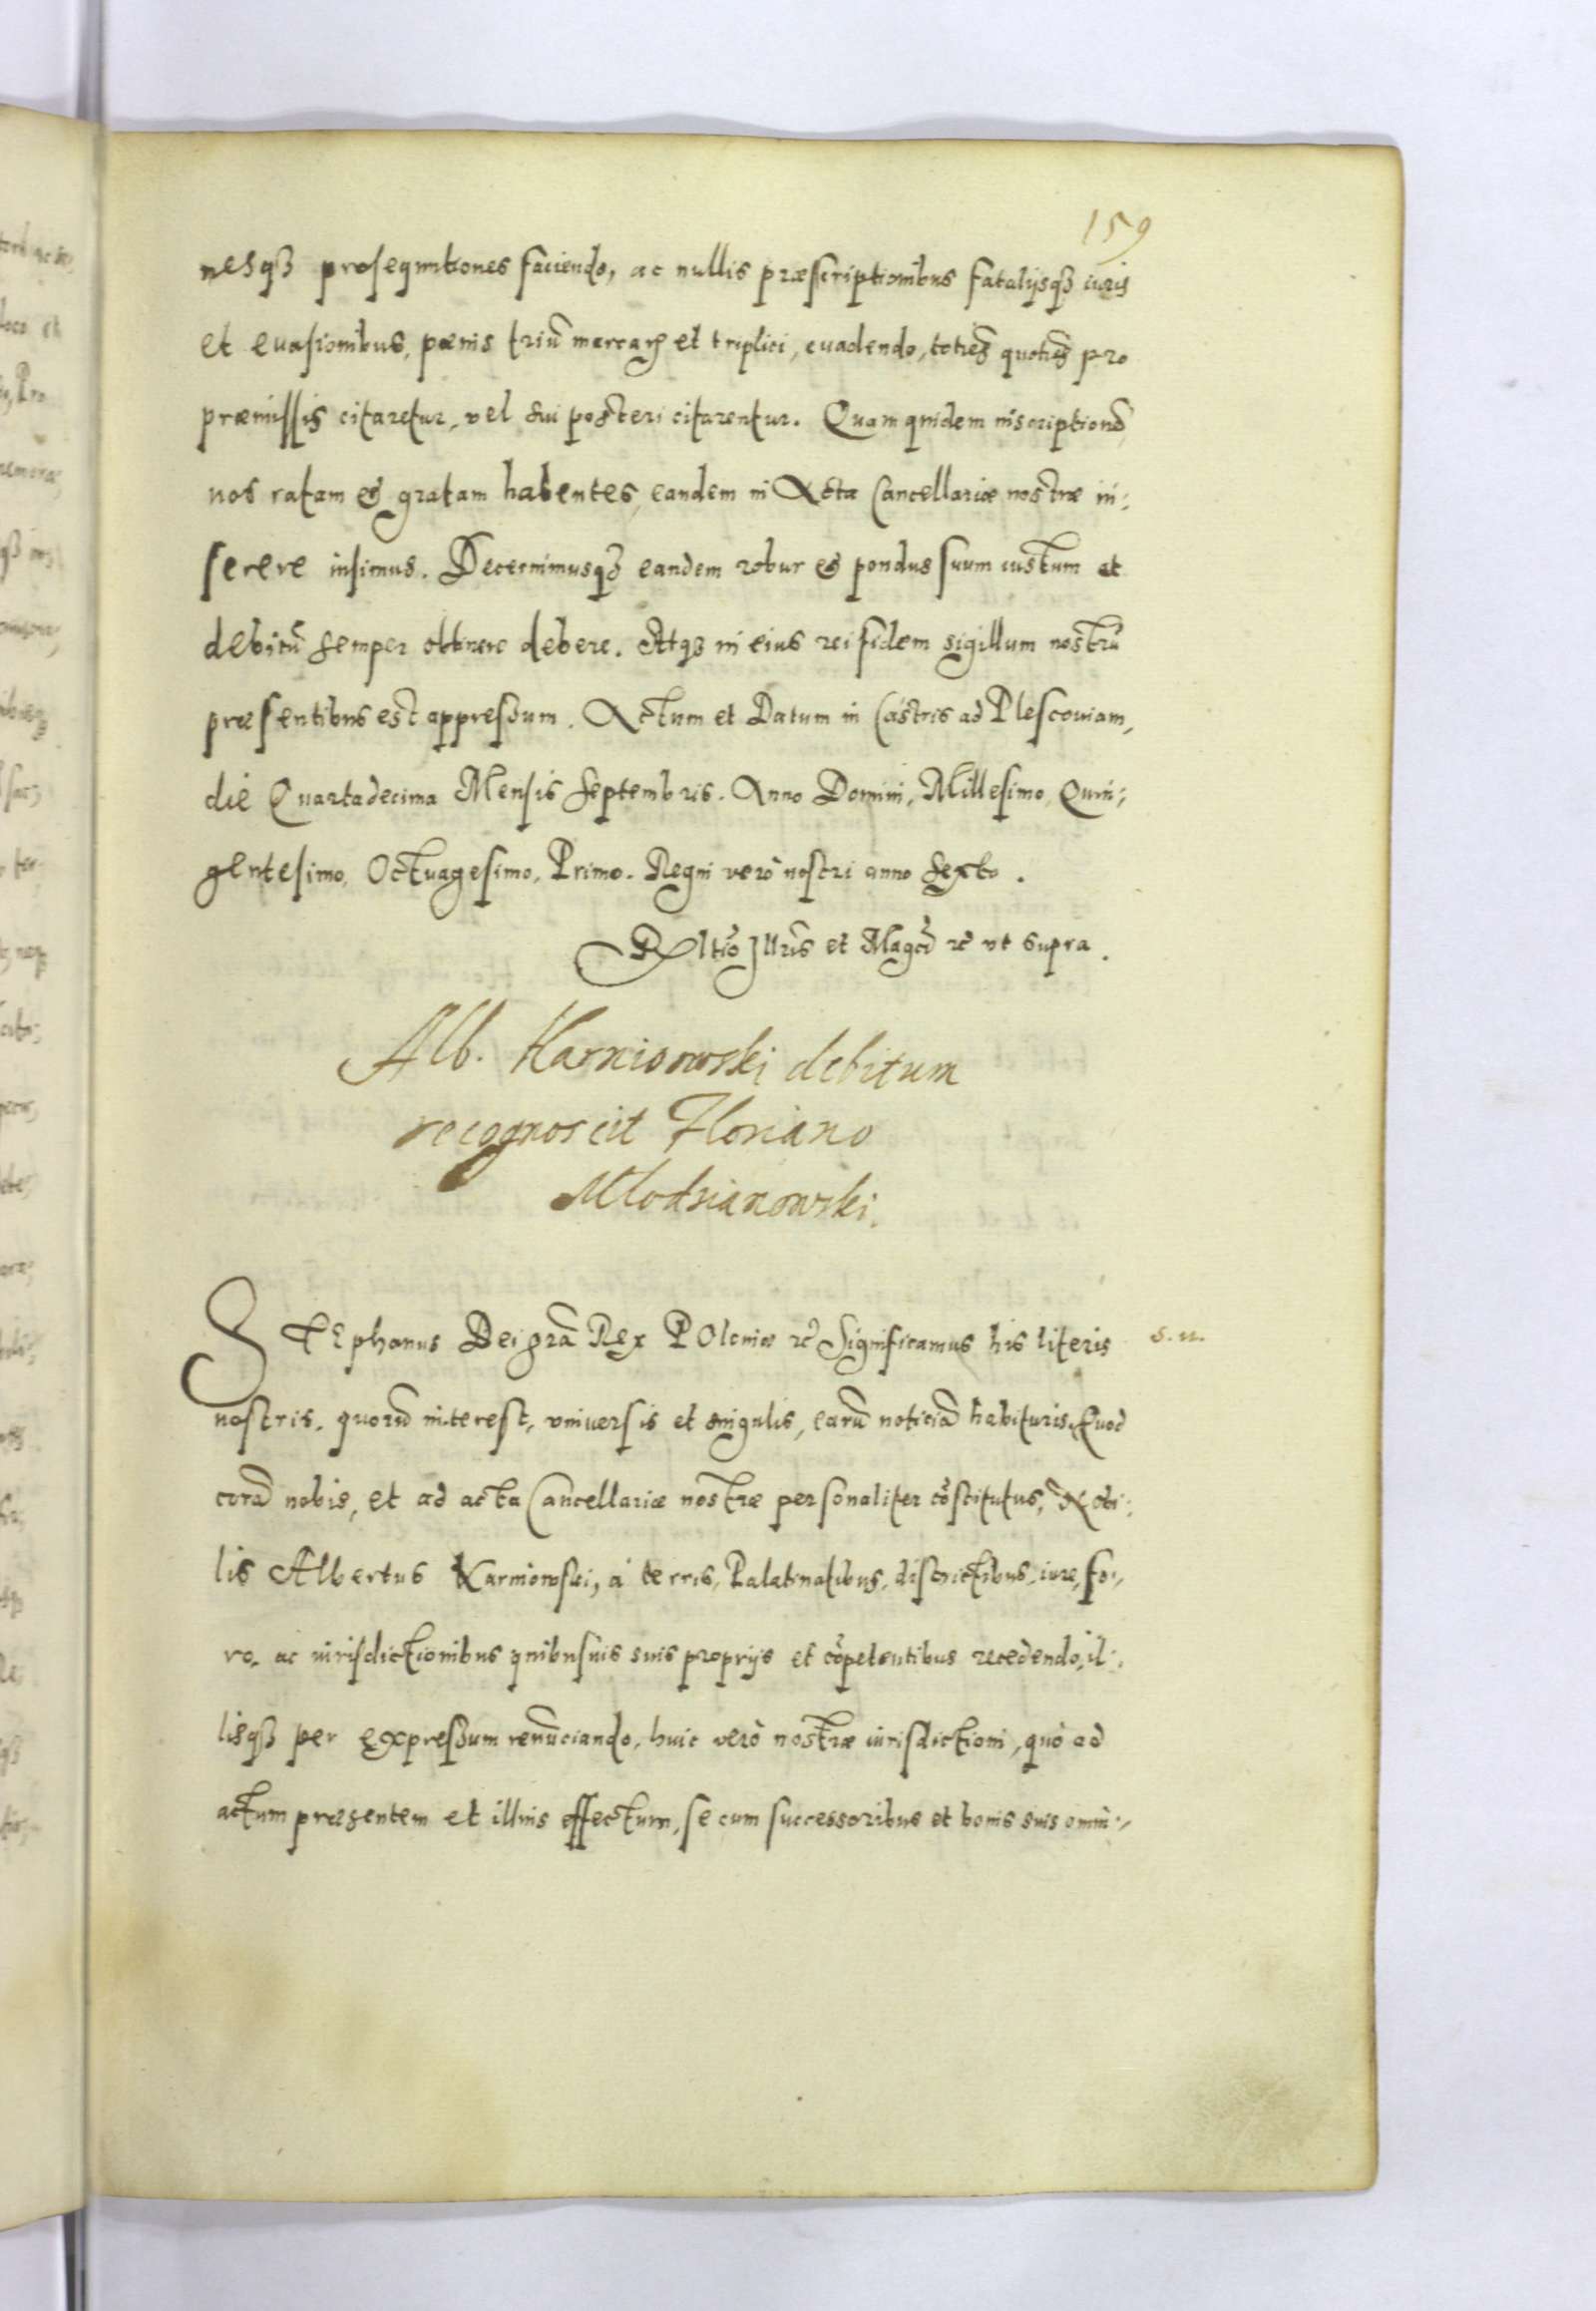 159
nesqȝ prosequutiones faciendo, ac nullis præscriptionibus fatalijsqȝ iuris
et euasionibus, pœnis triũ marcarꝝ et triplici, euadendo, toties quoties pro
præmissis citaretur, vel sui posteri citarentur. Quam quidem inscriptionẽ
nos ratam et gratam habentes, eandem in Acta Cancellariæ nostræ in:
serere iusimus. Decernimusqȝ eandem robur et pondus suum iustum et
debitũ semper obtinere debere. Atqȝ in eius rei fidem sigillum nostrũ
præsentibus est appressum. Actum et Datum in Castris ad Plescouiam,
die Quartadecima Mensis Septembris. Anno Domini, Millesimo, Quin:
gentesimo, Octuagesimo, Primo. Regni verò nostri anno sexto.
Rltio Illris et Magci rc vt supra.
Alb. Karniowski debitum
recognoscit Floriano
Mlodzianowski.
STEphanus Dei gra Rex POloniæ rc Significamus his literis
s. n.
nostris. quorũ interest, vniuersis et singulis, earũ noticiã habituris. Quod
corã nobis, et ad acta Cancellariæ nostræ personaliter cõstitutus, Nobi:
lis Albertus Karniowski, à terris, Palatinatibus, districtibus, iure, fo:
ro, ac iurisdictionibus quibusuis suis proprijs et cõpetentibus recedendo, il:
lisqȝ per expressum renũciando, huic verò nostræ iurisdictioni, quò ad
actum præsentem et illius effectum, se cum successoribus et bonis suis omni: